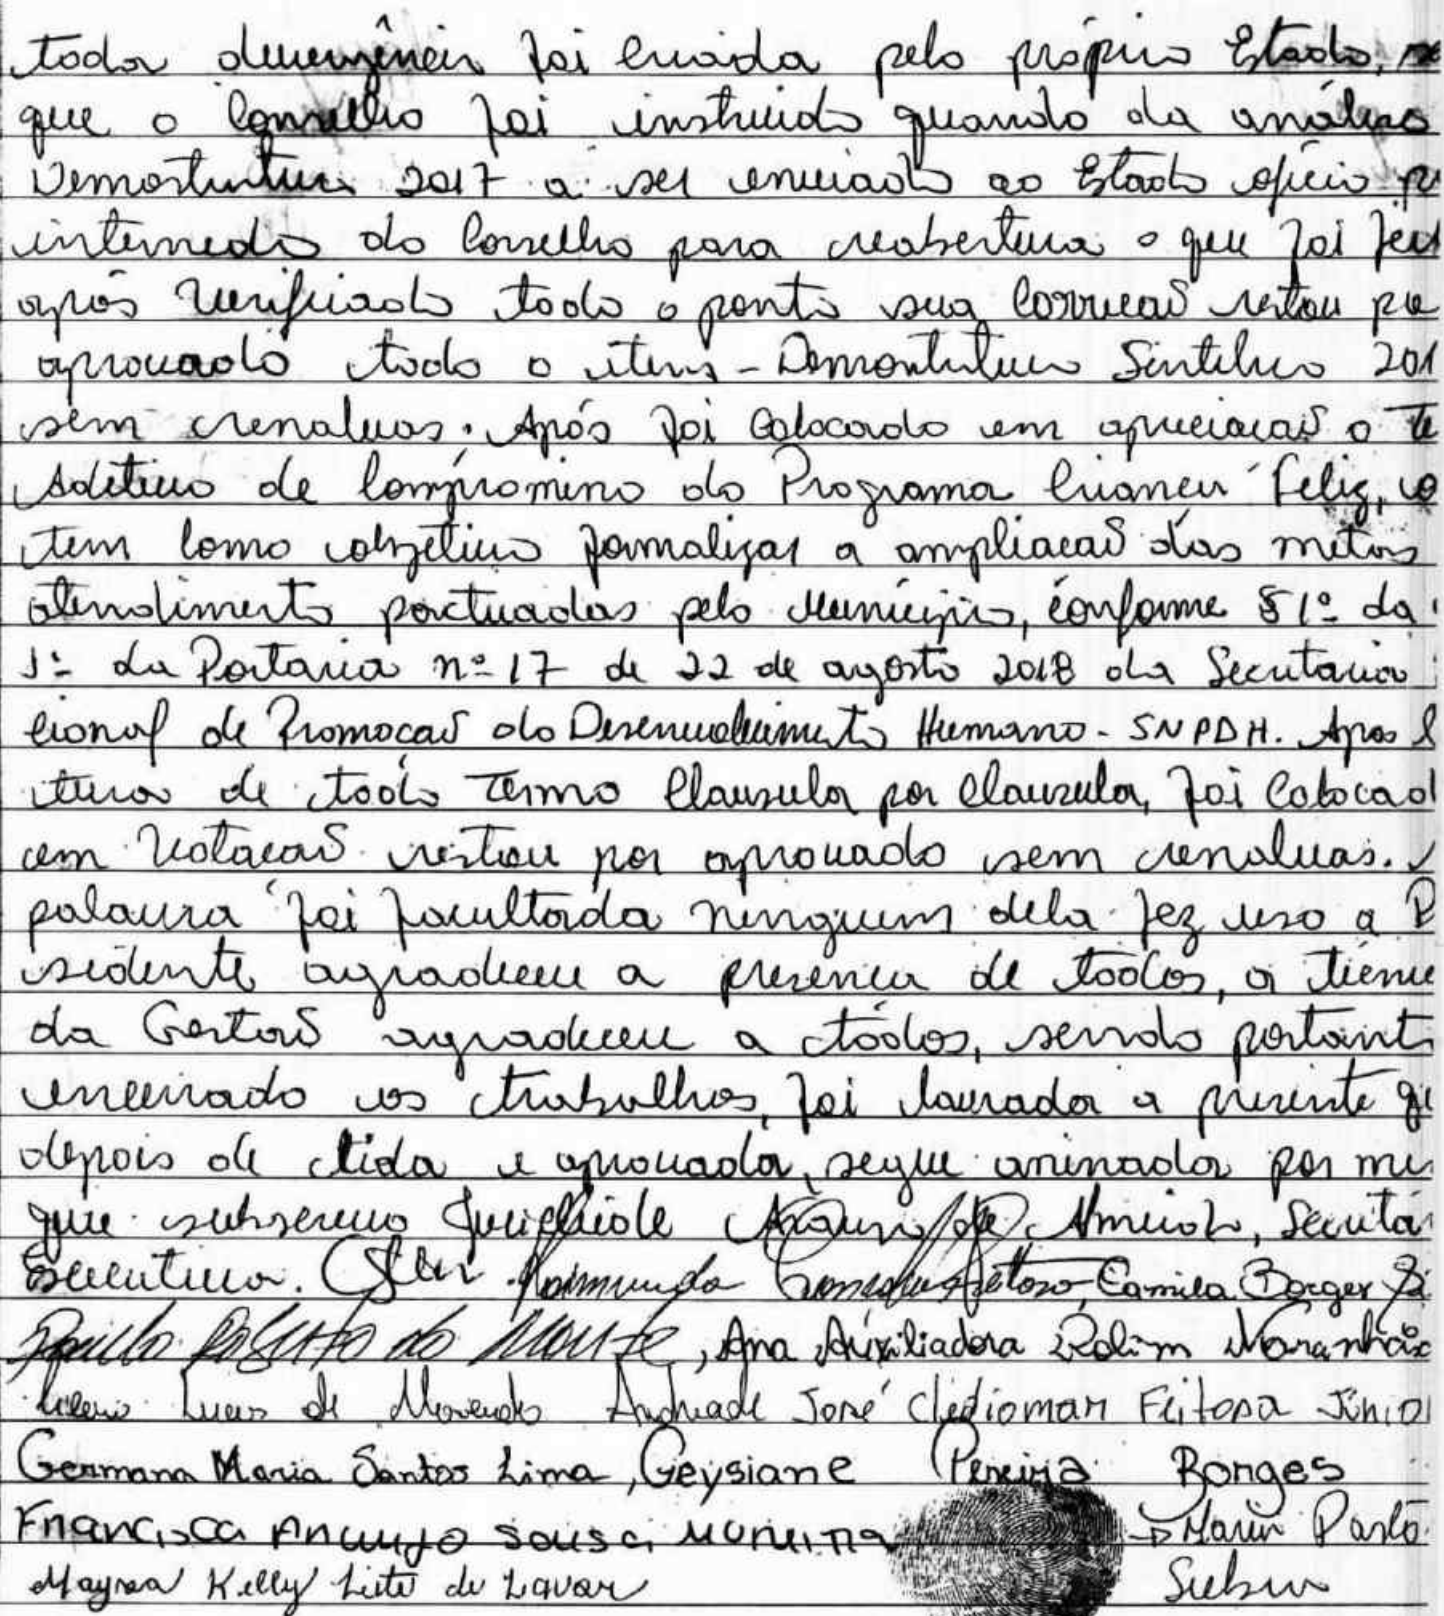 toda divergência foi criada pelo próprio Estado,
que o Conselho foi instruido quando da análise
Demonstrativo 2017 a ser enviado ao Estado ofício
intermedio do Conselho para reabertura o que foi
após verificado todo o ponto sua correcão restou
aprovado todo o itens - Demonstrativo Sintético 201
sem resalvas. Após foi colocado em apreciacão o
Aditivo de Compromisso do Programa Criança Feliz,
tem como objetivo formalizar a ampliacão das metas
atendimento pactuadas pelo Município, conforme § 1º da
1º da Portaria nº 17 de 22 de agosto 2018 da Secretaria
cional de Promocão do Desenvolvimento Humano - SNPDH. Apos
itura de todo Termo Clausula por Clausula, foi Colocad
em Votacão restou por aprovado sem resalvas.
palavra foi facultada ninguem dela fez uso a P
sidente agradeceu a presença de todos, a
da Gestão agradeceu a todos, sendo portant
encerrado os trabalhos, foi lavrada a presente
depois de lida e aprovada, segue assinada por
que subscrevo Almeida, Secretá
Executiva. Raimunda Camila Borges
Paulo Roberto do Monte, Ana Auxiliadora Rolim Maranhão
Lucas de Andrade José Cledioman Feitosa Júnio
Germana Maria Santos Lima, Geysiane Pereira Borges
Francisca Araujo Sousa Moreira → Maria
Maysa Kelly Leite de Lavor